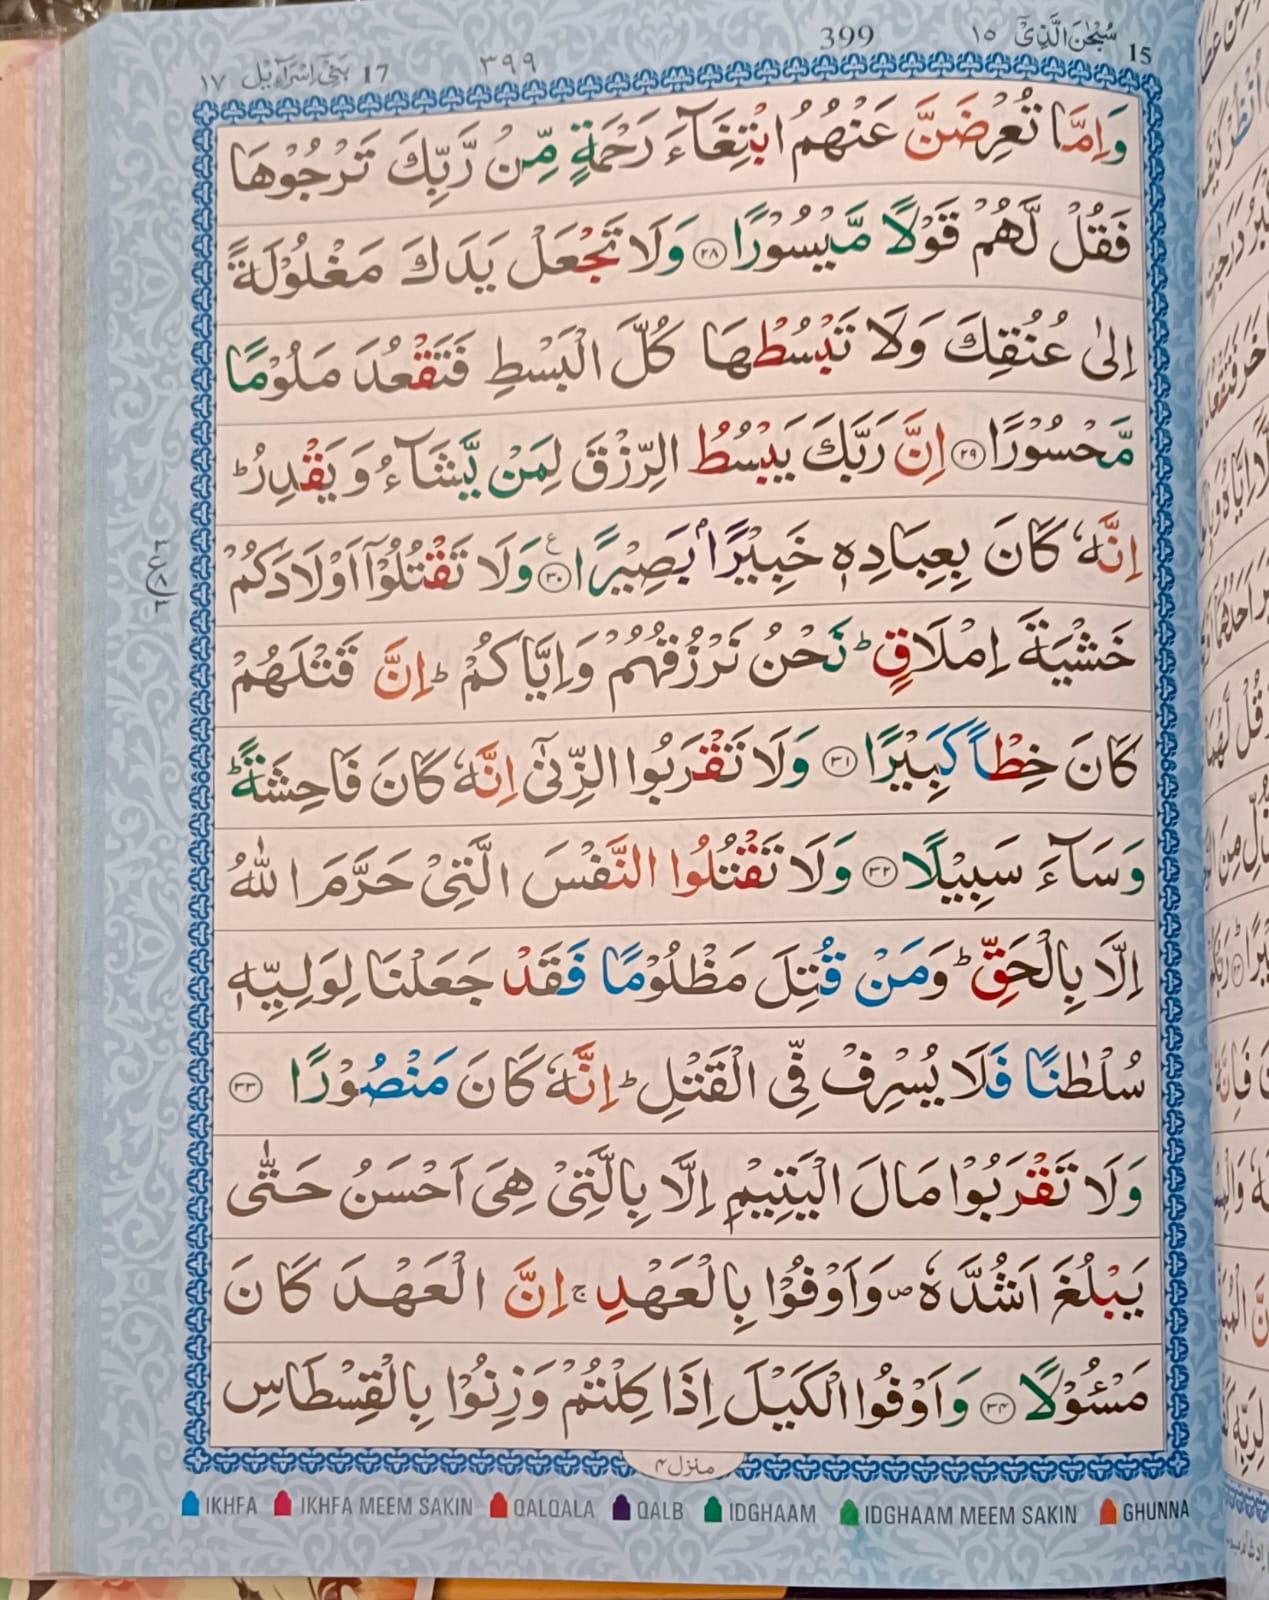 15 سُبۡحٰنَ الَّذِىۡۤ ١٥ 399 ٣٩٩ 17 بَنِىۡۤ اِسۡرَآءِيۡل ١٧
وَاِمَّا تُعۡرِضَنَّ عَنۡهُمُ ابۡتِغَآءَ رَحۡمَةٍ مِّنۡ رَّبِّكَ تَرۡجُوۡهَا
فَقُلْ لَّهُمۡ قَوۡلًا مَّيۡسُوۡرًا ٢٨ وَلَا تَجۡعَلۡ يَدَكَ مَغۡلُوۡلَةً
اِلٰى عُنُقِكَ وَلَا تَبۡسُطۡهَا كُلَّ الۡبَسۡطِ فَتَقۡعُدَ مَلُوۡمًا
مَّحۡسُوۡرًا ٢٩ اِنَّ رَبَّكَ يَبۡسُطُ الرِّزۡقَ لِمَنۡ يَّشَآءُ وَيَقۡدِرُ ؕ
اِنَّهٗ كَانَ بِعِبَادِهٖ خَبِيۡرًۢا بَصِيۡرًا ٣٠ ع وَلَا تَقۡتُلُوۡۤا اَوۡلَادَكُمۡ
خَشۡيَةَ اِمۡلَاقٍ ؕ نَحۡنُ نَرۡزُقُهُمۡ وَاِيَّاكُمۡ ؕ اِنَّ قَتۡلَهُمۡ
كَانَ خِطۡاً كَبِيۡرًا ٣١ وَلَا تَقۡرَبُوا الزِّنٰٓى اِنَّهٗ كَانَ فَاحِشَةً ؕ
وَسَآءَ سَبِيۡلًا ٣٢ وَلَا تَقۡتُلُوا النَّفۡسَ الَّتِىۡ حَرَّمَ اللّٰهُ
اِلَّا بِالۡحَقِّ ؕ وَمَنۡ قُتِلَ مَظۡلُوۡمًا فَقَدۡ جَعَلۡنَا لِوَلِيِّهٖ
سُلۡطٰنًا فَلَا يُسۡرِفۡ فِّى الۡقَتۡلِ ؕ اِنَّهٗ كَانَ مَنۡصُوۡرًا ٣٣
وَلَا تَقۡرَبُوۡا مَالَ الۡيَتِيۡمِ اِلَّا بِالَّتِىۡ هِىَ اَحۡسَنُ حَتّٰى
يَبۡلُغَ اَشُدَّهٗ ۖ وَاَوۡفُوۡا بِالۡعَهۡدِ ۚ اِنَّ الۡعَهۡدَ كَانَ
مَسۡئُوۡلًا ٣٤ وَاَوۡفُوا الۡكَيۡلَ اِذَا كِلۡتُمۡ وَزِنُوۡا بِالۡقِسۡطَاسِ
منزل ٤
IKHFA IKHFA MEEM SAKIN QALQALA QALB IDGHAAM IDGHAAM MEEM SAKIN GHUNNA